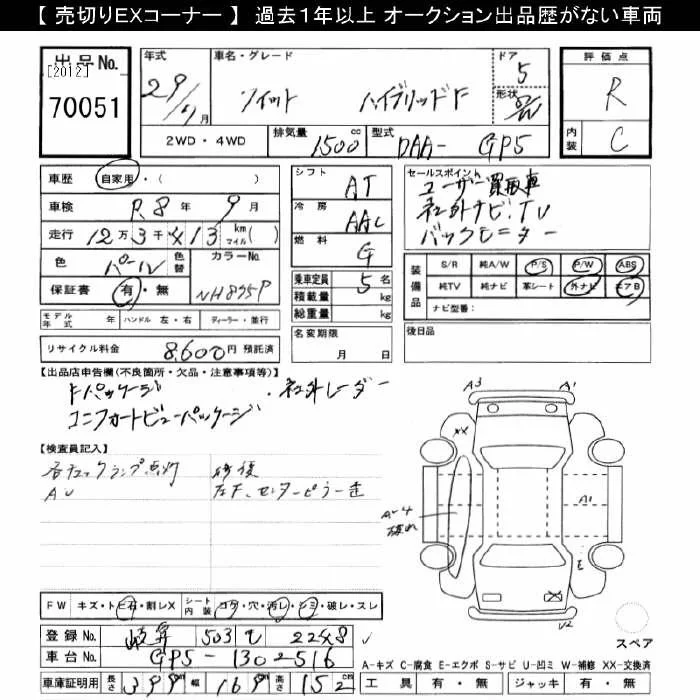 【 売切りEXコーナー 】 過去1年以上 オークション出品歴がない車両
出品No.
[2012]
70051
年式 車名・グレード ドア
29/ 月 フィット ハイブリッド F 5
形状
2WD・4WD 排気量 1500 cc 型式 DAA- GP5
評価点
R
内装 C
車歴 自家用・( )
車検 R8年 9月
走行 12万3千413 km マイル( )
色 パール 色替 カラーNo.
保証書 有・無 NH875P
モデル年式 年 ハンドル 左・右 ディーラー・並行
リサイクル料金 8,600円 預託済
シフト AT
冷房 AAC
燃料 G
乗車定員 5 名
積載量 kg
総重量 kg
名変期限
月 日
セールスポイント
ユーザー買取車
社外ナビ・TV
バックモニター
装備品 S/R 純A/W P/S P/W ABS
純TV 純ナビ 革シート 外ナビ エアB
ナビ型番：
後日品
【出品店申告欄(不良箇所・欠品・注意事項等)】
Fパッケージ ・社外レーダー
コンフォートビューパッケージ
【検査員記入】
各チェックランプ点灯 修復
AU 左F、センターピラー歪
A3 A1
XX
A-4
擦れ
A1
E
U2
FW キズ・トビ石・割レX シート内装 コゲ・穴・汚レ・シミ・破レ・スレ
登録No. 岐阜 503 て 2248
車台No. GP5-1302516
車庫証明用 長さ 399 幅 169 高さ 152
スペア
A-キズ C-腐食 E-エクボ S-サビ U-凹ミ W-補修 XX-交換済
工具 有・無 ジャッキ 有・無